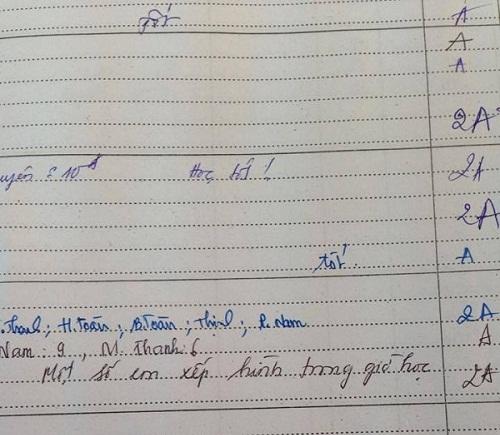 tốt A
A
A
2A
uyên : 10đ Học tốt ! 2A
2A
tốt A
Thanh; H.Toàn; B.Toàn; Thịnh; P. Nam 2A
Nam : 9, M. Thanh: 6 A
Một số em xếp hình trong giờ học 2A